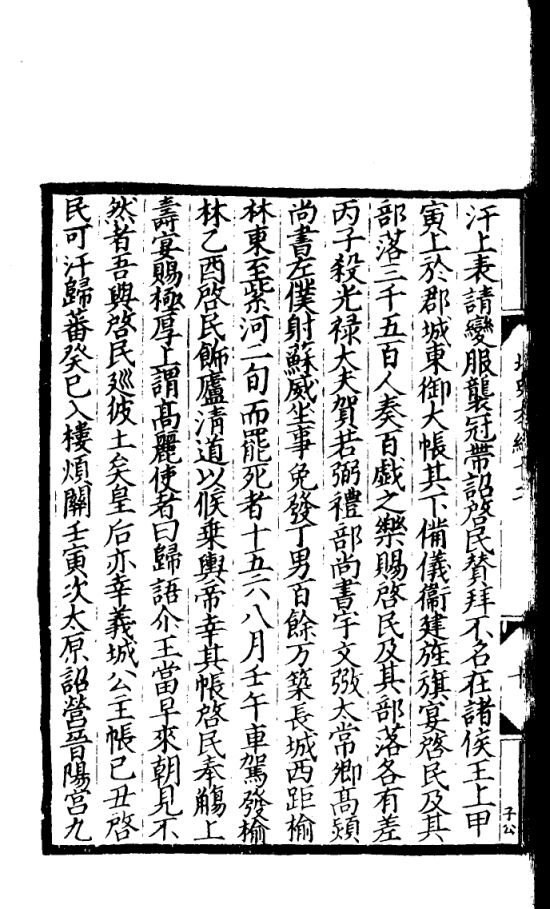 汗上表請變服襲冠帶詔啓民贊拜不名在諸侯王上甲
寅上於郡城東御大帳其下備儀衞建旌旗宴啓民及其
部落三千五百人奏百戲之樂賜啓民及其部落各有差
丙子殺光祿大夫賀若弼禮部尚書宇文㢸太常卿高熲
尚書左僕射蘇威坐事免發丁男百餘万築長城西距榆
林東至紫河一旬而罷死者十五六八月壬午車駕發榆
林乙酉啓民飾廬清道以候乗輿帝幸其帳啓民奉觴上
壽宴賜極厚上謂高麗使者曰歸語尒王當早來朝見不
然者吾與啓民廵彼土矣皇后亦幸義城公主帳己丑啓
民可汗歸蕃癸巳入樓煩關壬寅次太原詔營晉陽宮九
子公